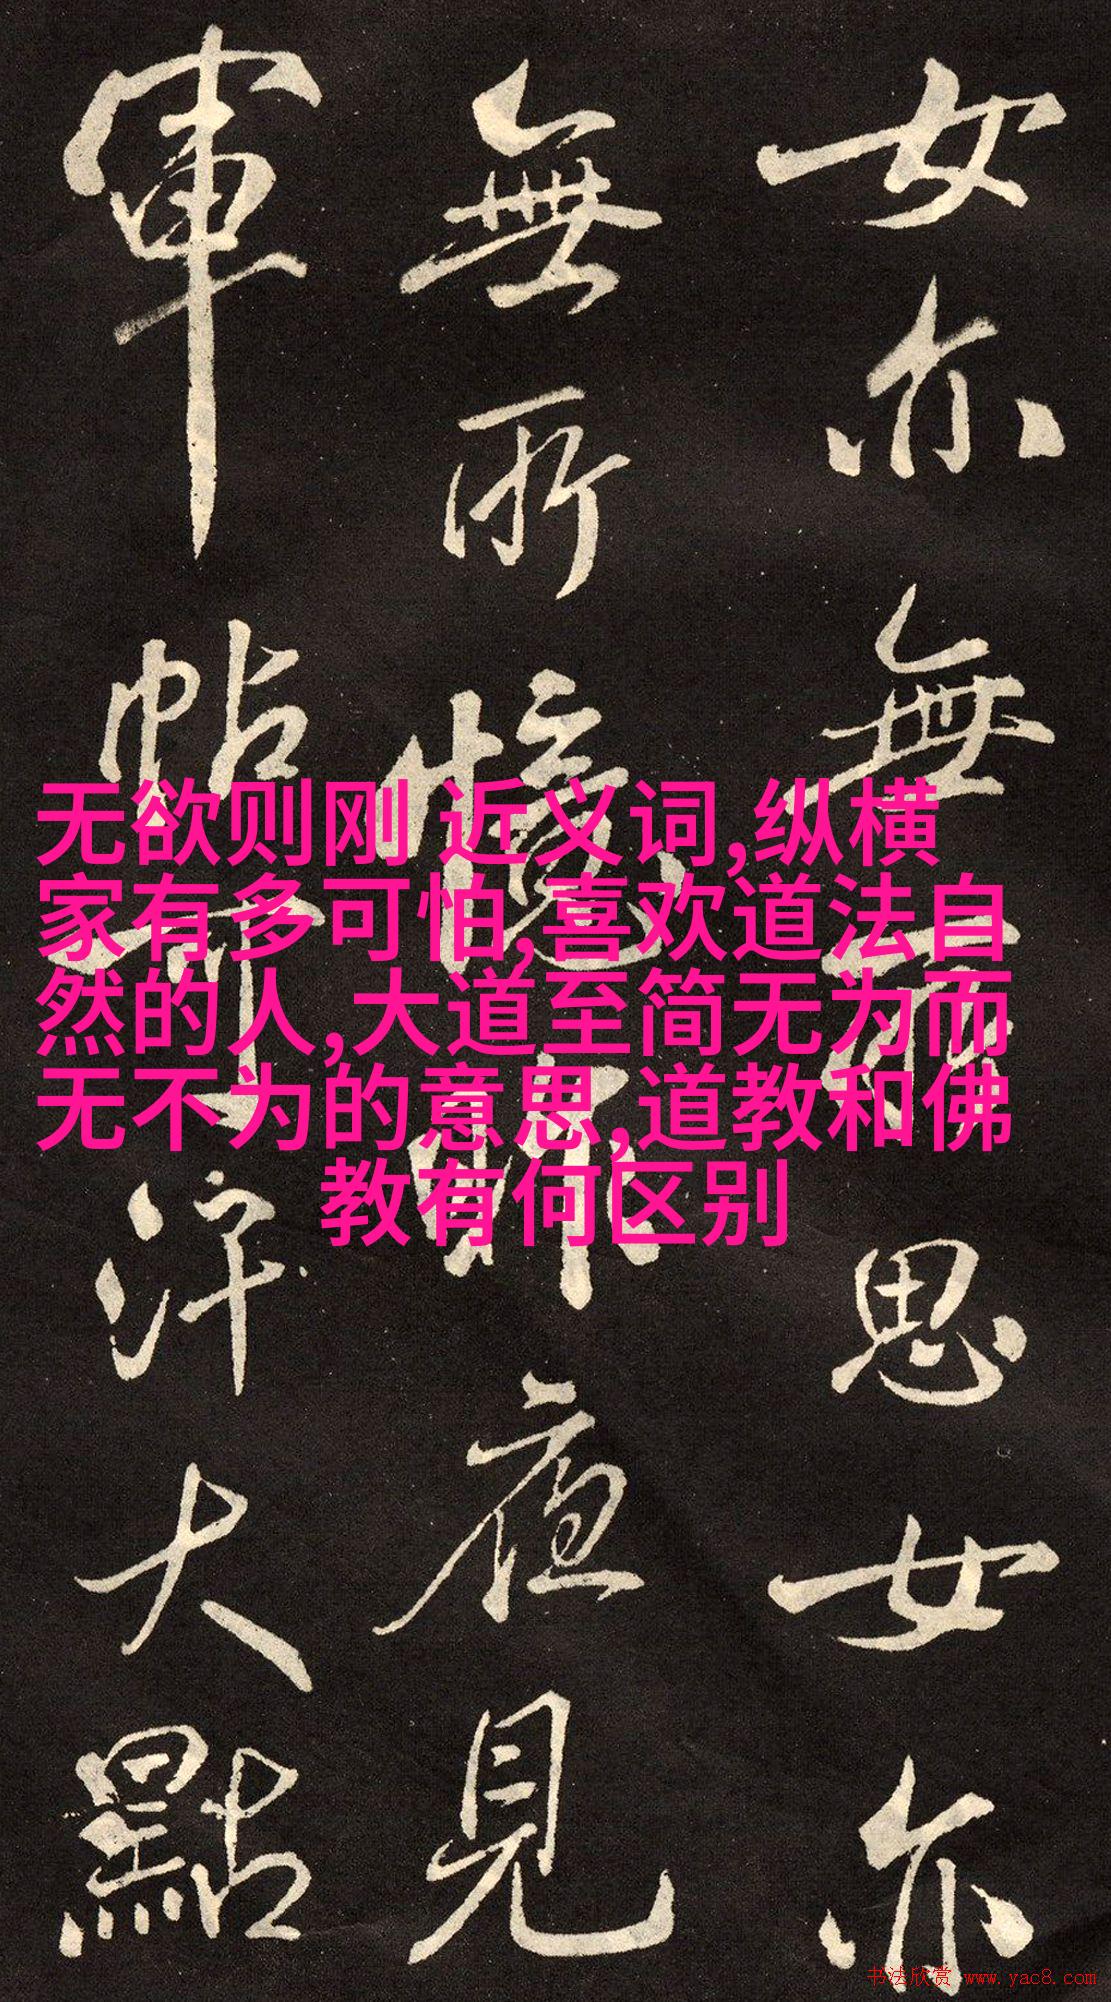 女亦無所思女亦
無所憶昨夜見
軍帖可汗大點
无欲则刚 近义词,纵横
家有多可怕,喜欢道法自
然的人,大道至简无为而
无不为的意思,道教和佛
教有何区别
书法欣赏 www.yac8.com